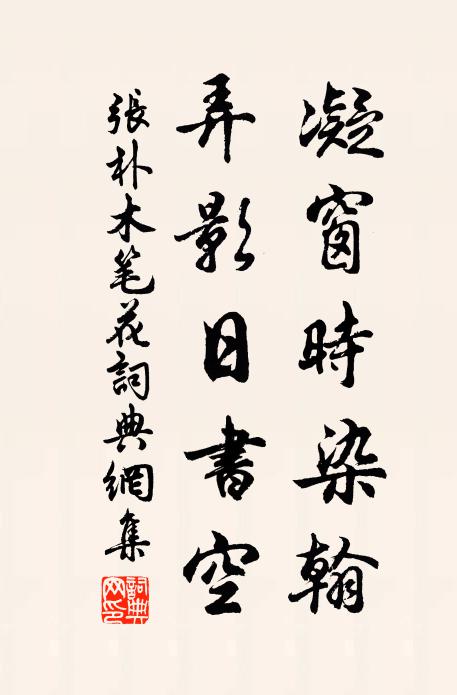 凝窗時染翰
弄影日書空
張朴木笔花詞典網集
詞典网印